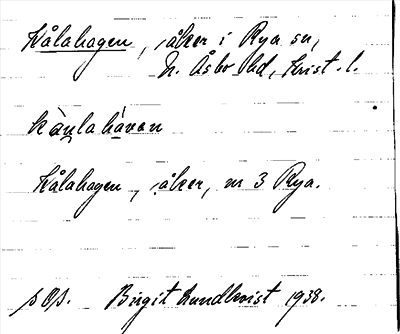 Kålahagen, åker i Rya sn,
N. Åsbo hd, Krist. l.
kàu̯lahávan
Kålahagen, åker, nr 3 Rya.
s Os. Birgit Lundkvist 1938.